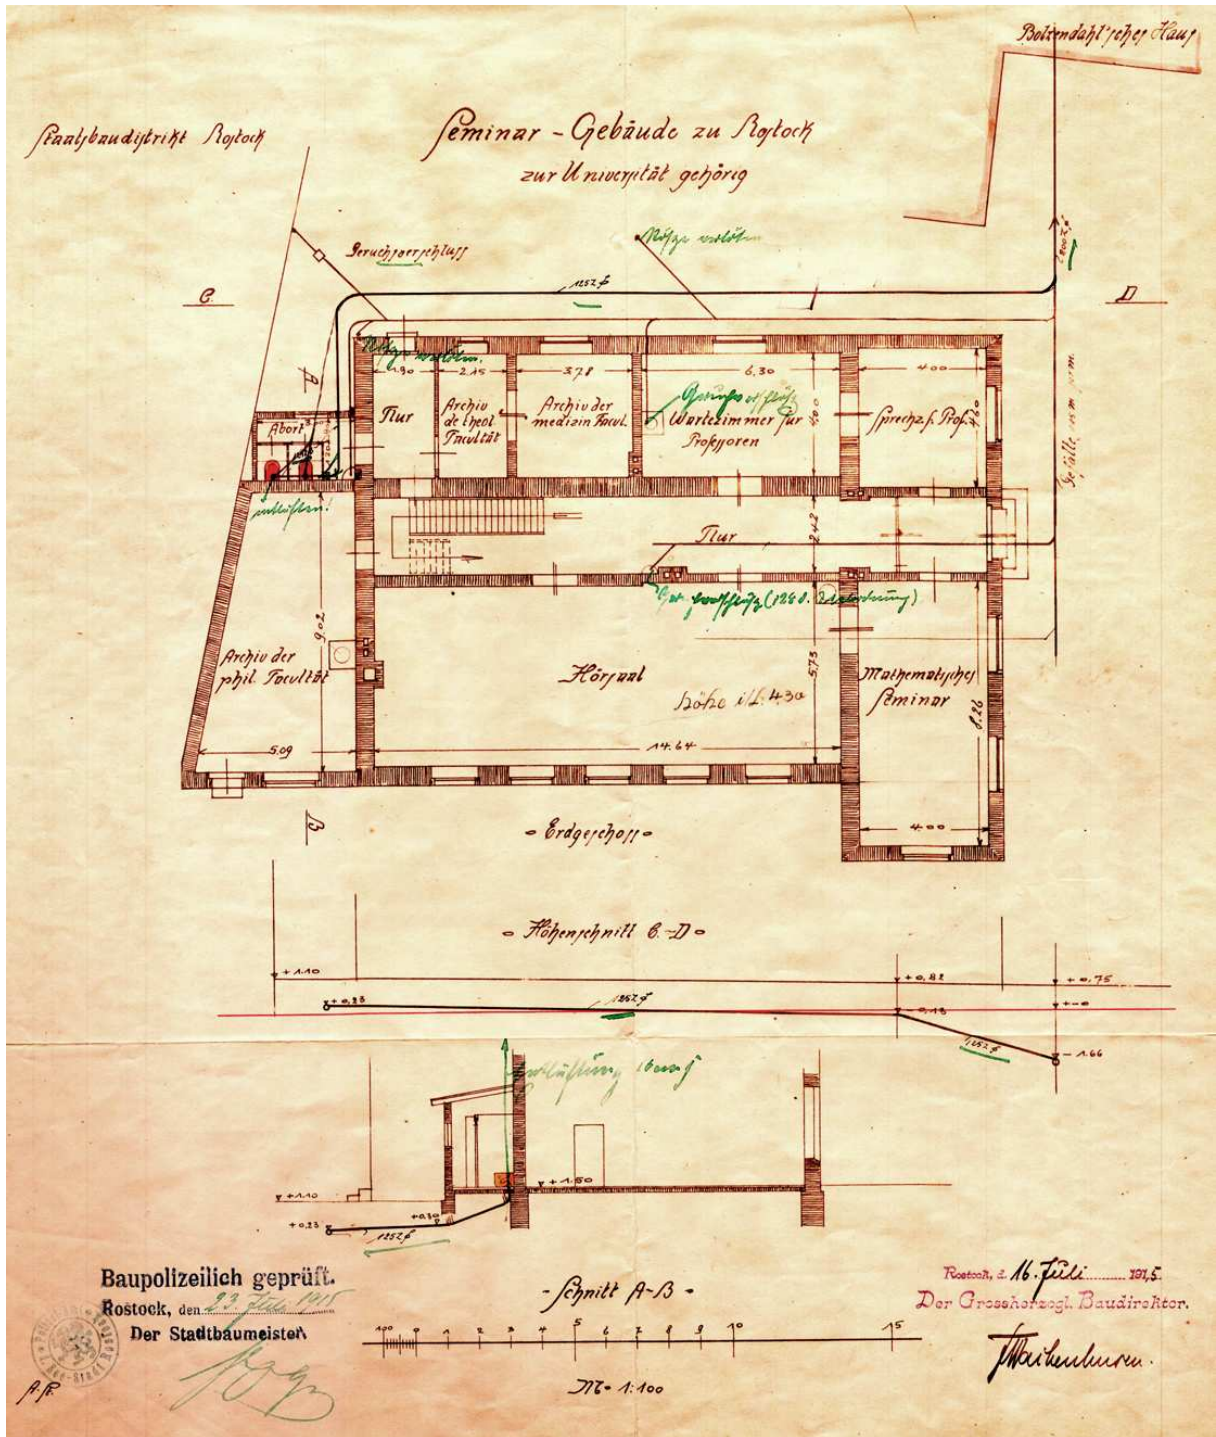 Botzendahl'sches Haus
Staatsbaudistrikt Rostock
Seminar - Gebäude zu Rostock
zur Universität gehörig
Geruchverschluss
C.
D
A
1.90
2.15
3.78
6.30
4.00
Abort
Flur
Archiv
de theol.
Facultät
Archiv der
medizin Facul.
Wartezimmer für
Professoren
4.00
Sprechz. f. Prof.
4.60
entlüften!
Flur
2.42
9.02
Archiv der
phil. Facultät
Hörsaal
Höhe i/L. 4.30
5.73
Mathematisches
Seminar
8.26
5.09
14.64
4.00
B
- Erdgeschoss -
- Höhenschnitt C-D -
+ 1.10
+ 0,82
+ 0,75
+ 0,23
- 0,13
- 1.66
+ 1.50
+ 1.10
+ 0,23
+ 0,30
Baupolizeilich geprüft.
Rostock, den 23. Juli 1915
Der Stadtbaumeister
- Schnitt A-B -
100 0 1 2 3 4 5 6 7 8 9 10 15
M = 1:100
Rostock, d. 16. Juli 1915.
Der Grossherzogl. Baudirektor.